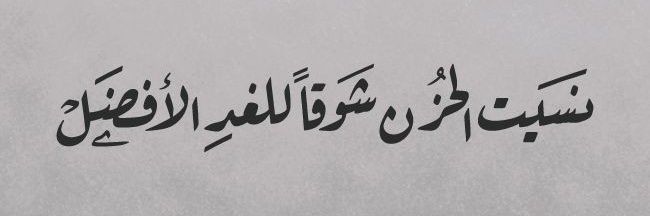 نسيَت الحُزن شَوقاً للغدِ الأفضَل